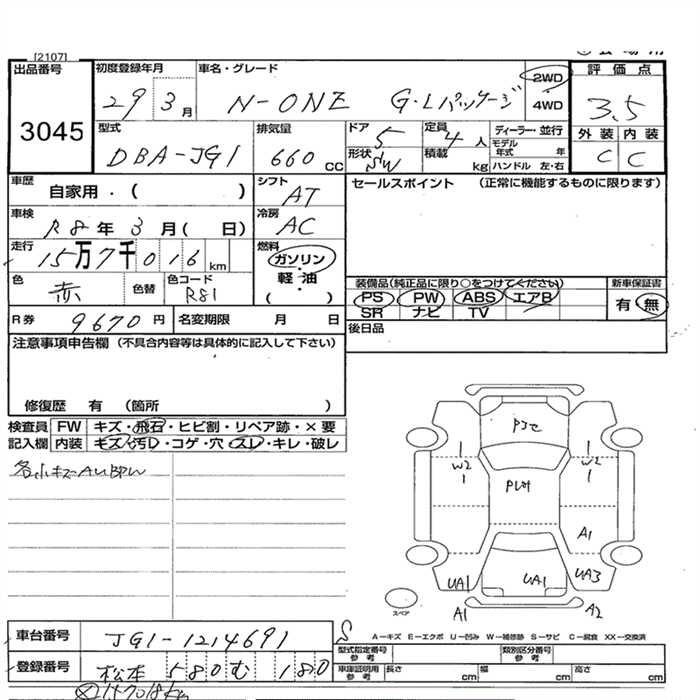 [2107]
出品番号
3045
初度登録年月
29 3月
車名・グレード
N-ONE G・Lパッケージ
2WD
4WD
評価点
3.5
外装 内装
C C
型式
DBA-JG1
排気量
660 CC
ドア 5
形状 SW
定員 4人
積載 kg
ディーラー・並行
モデル年式 年
ハンドル 左・右
車歴
自家用・( )
シフト
AT
セールスポイント (正常に機能するものに限ります)
車検
R8年 3月( 日)
冷房
AC
走行
15万7千016km
燃料
ガソリン
軽油
( ・ )
色
赤
色替
色コード
R81
装備品(純正品に限り○をつけてください)
PS PW ABS エアB
SR ナビ TV
新車保証書
有 無
R券
9670円
名変期限 月 日
後日品
注意事項申告欄(不具合内容等は具体的に記入して下さい)
修復歴 有 (箇所 )
検査員
記入欄
FW キズ・飛石・ヒビ割・リペア跡・×要
内装 キズ・汚レ・コゲ・穴・スレ・キレ・破レ
各小キズ-AUBPW
W2
W2
A1
UA1
UA1
UA3
A1
A2
スペア
A-キズ E-エクボ U-凹み W-補修跡 S-サビ C-腐食 XX-交換済
車台番号
JG1-1214691
S
登録番号
松本 580 む 180
型式指定番号
参考
類別区分番号
参考
車庫証明用
参考
長さ cm
幅 cm
高さ cm
157018km